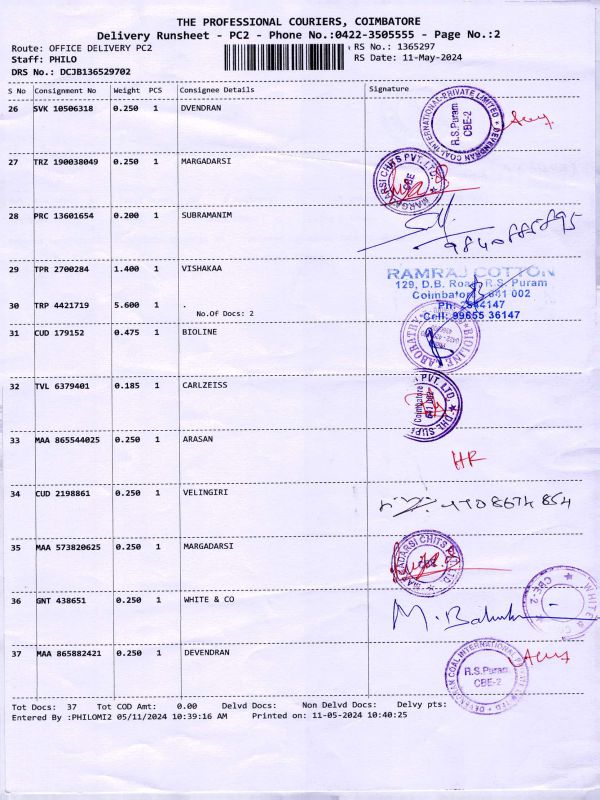 THE PROFESSIONAL COURIERS, COIMBATORE
Delivery Runsheet - PC2 - Phone No.:0422-3505555 - Page No.:2
Route: OFFICE DELIVERY PC2 RS No.: 1365297
Staff: PHILO RS Date: 11-May-2024
DRS No.: DCJB136529702
S No Consignment No Weight PCS Consignee Details Signature
26 SVK 10506318 0.250 1 DVENDRAN
DEVENDRAN COAL INTERNATIONAL PRIVATE LIMITED
R.S.Puram
CBE-2
27 TRZ 190038049 0.250 1 MARGADARSI
MARGADARSI CHITS PVT. LTD.
CBE
28 PRC 13601654 0.200 1 SUBRAMANIM
29 TPR 2700284 1.400 1 VISHAKAA
RAMRAJ COTTON
129, D.B. Road, R.S. Puram
Coimbatore - 641 002
30 TRP 4421719 5.600 1 .
No.Of Docs: 2
Cell: 99655 36147
31 CUD 179152 0.475 1 BIOLINE
BIOLINE LABORATRY
32 TVL 6379401 0.185 1 CARLZEISS
PVT. LTD.
DHL SUP
Coimbatore
33 MAA 865544025 0.250 1 ARASAN
HR
34 CUD 2198861 0.250 1 VELINGIRI
35 MAA 573820625 0.250 1 MARGADARSI
MARGADARSI CHITS PVT. LTD.
36 GNT 438651 0.250 1 WHITE & CO
WHITE & CO
CBE-2
37 MAA 865882421 0.250 1 DEVENDRAN
DEVENDRAN COAL INTERNATIONAL PRIVATE LIMITED
R.S.Puram
CBE-2
Tot Docs: 37 Tot COD Amt: 0.00 Delvd Docs: Non Delvd Docs: Delvy pts:
Entered By :PHILOMI2 05/11/2024 10:39:16 AM Printed on: 11-05-2024 10:40:25